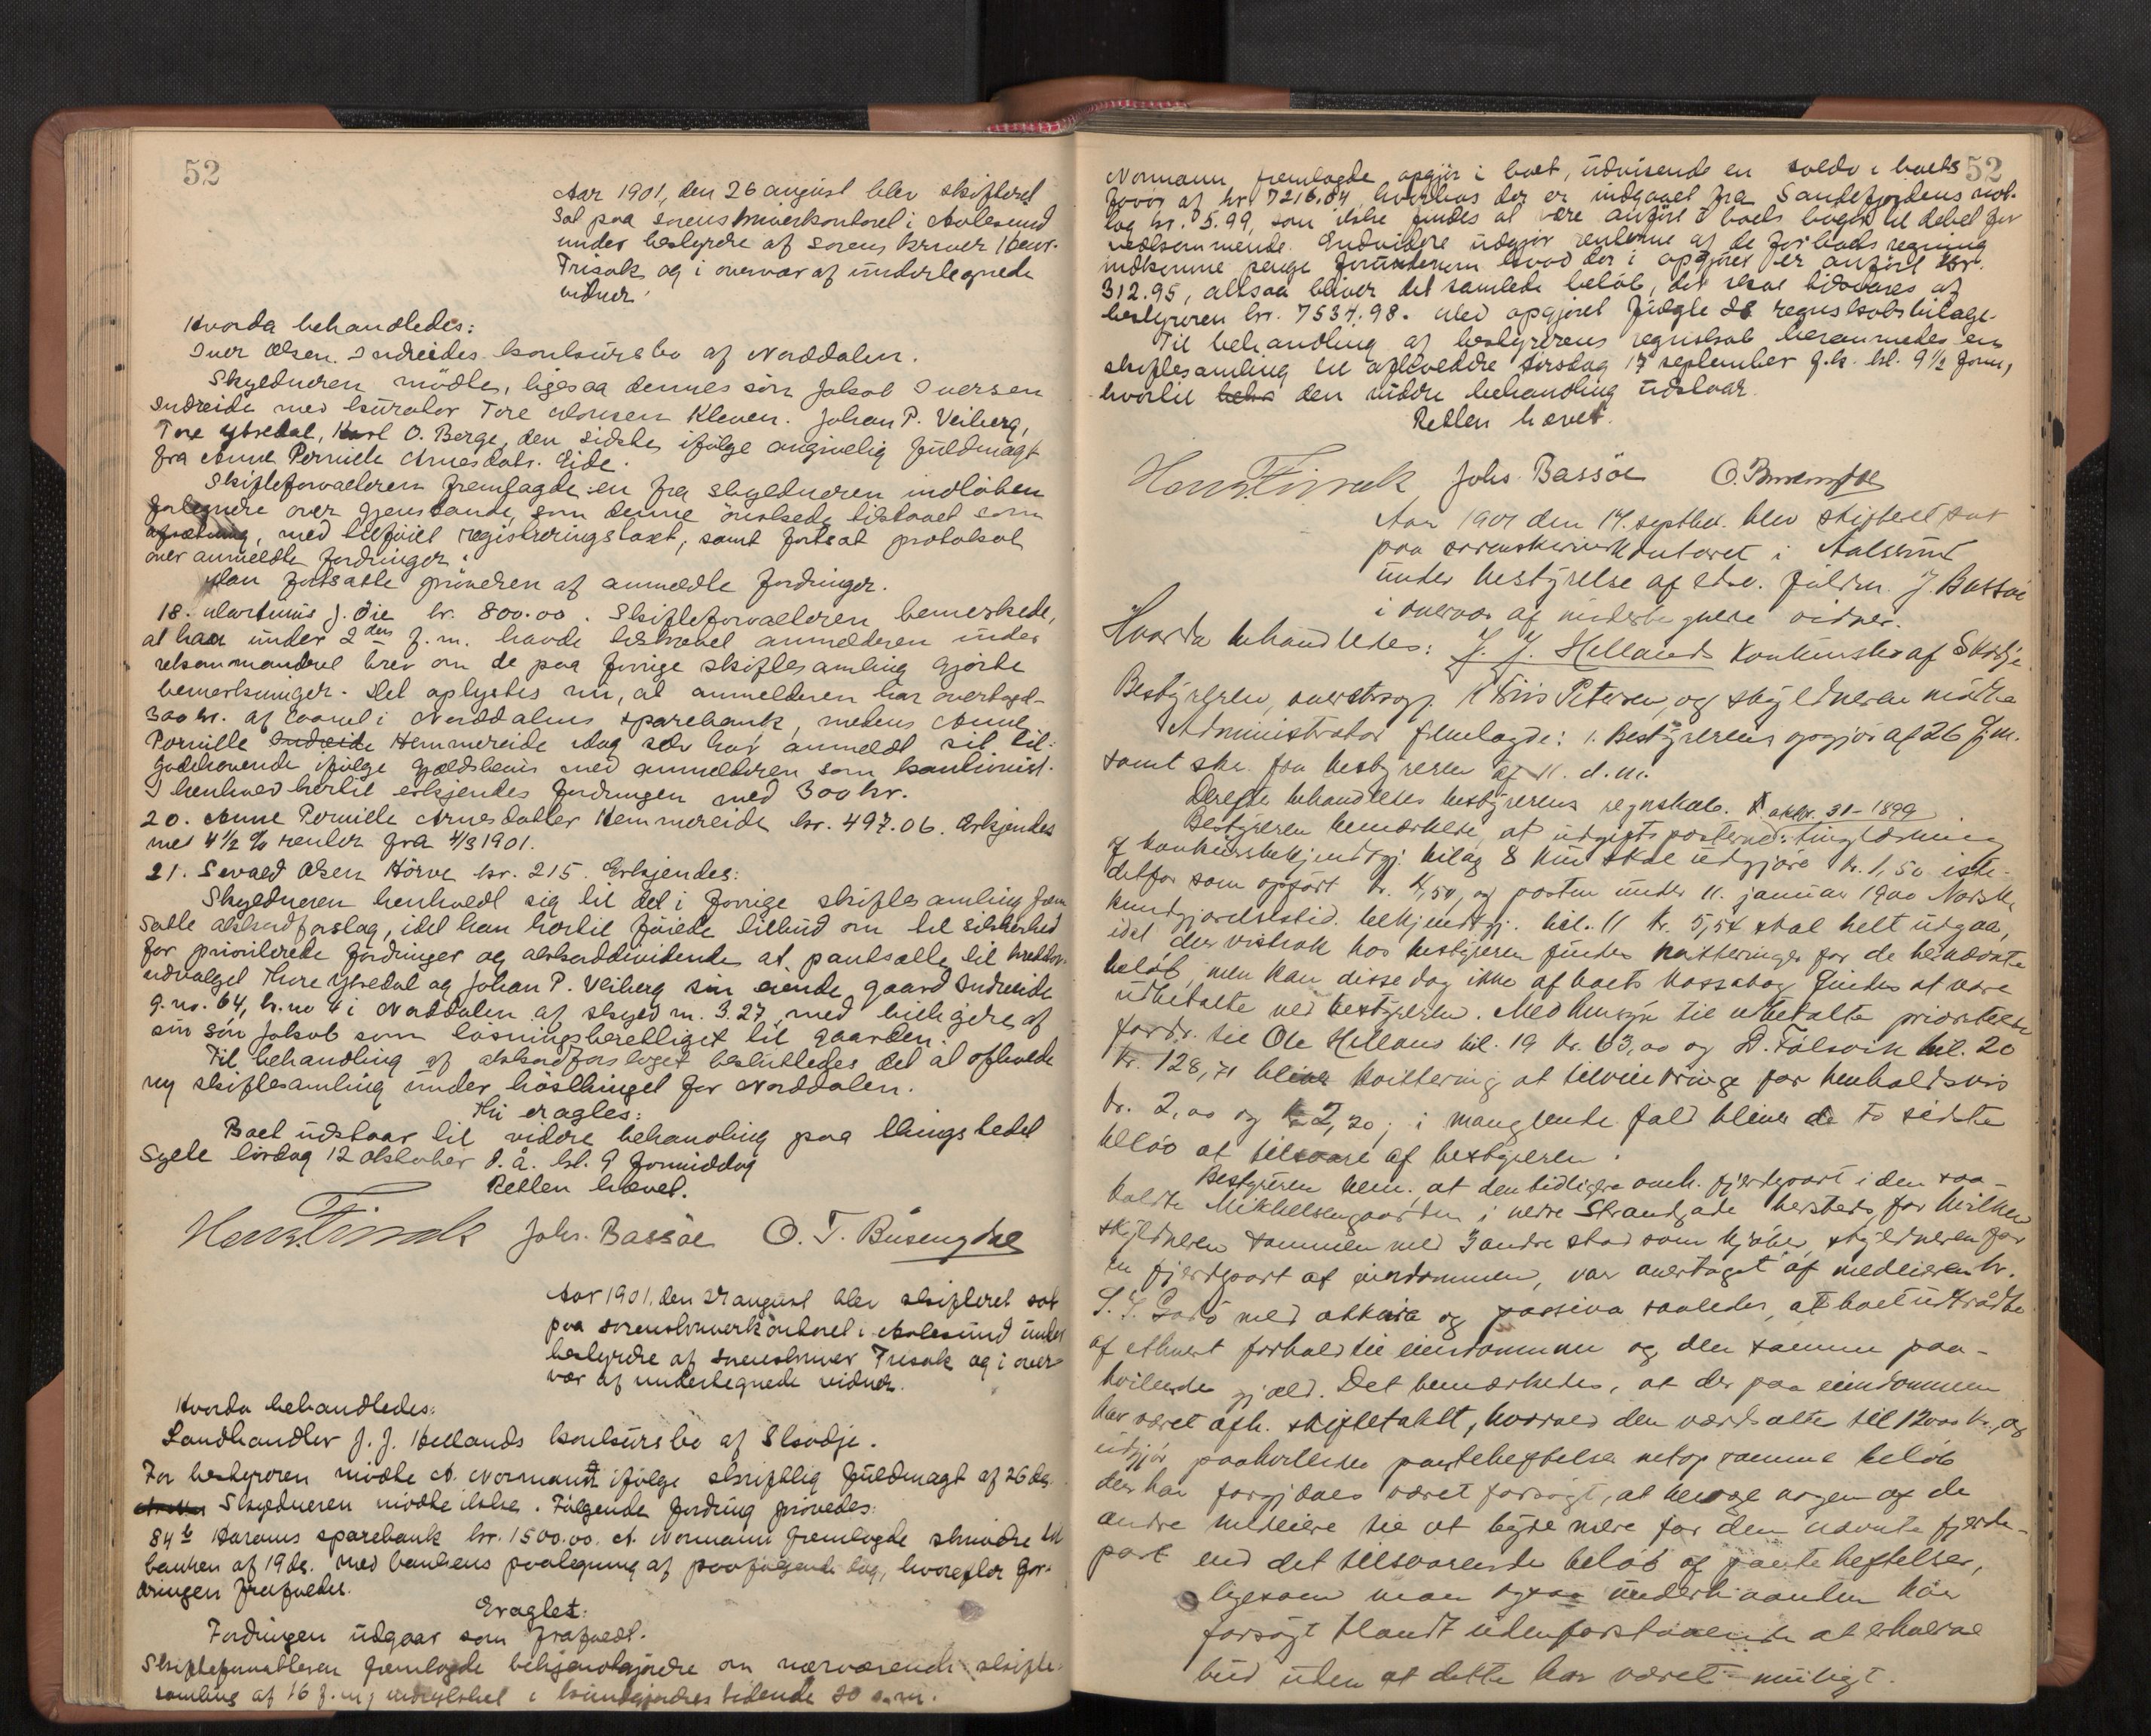 52
Aar 1901, den 26 august blev skifteret
sat paa sorenskriverkontoret i Aalesund
under bestyrelse af sorenskriver Henr.
Finsak og i overvær af undertegnede
vidner.
Hvorda behandledes:
Iver Olsen Indreides konkursbo af Norddalen.
Skyldneren mødte, ligesaa dennes søn Jakob Iversen
Indreide med kurator Tore Monsen Kleven. Johan P. Veiberg,
Tore Ytredal, Karl O. Berge, den sidste ifølge angivelig fuldmagt
fra Anne Pernille Arnesdatr. Eide.
Skifteforvalteren fremlagde en fra skyldneren indløben
fortegnelse over gjenstande, som denne ønskede tilstaaet som
med tilføiet registreringstaxt, samt fortsat protokol
over anmeldte fordringer.
Man fortsatte prøvelsen af anmeldte fordringer.
18. Martinus J. Øie kr. 800.00. Skifteforvalteren bemerkede,
at han under 2den f.m. havde tilskrevet anmelderen under
rekommanderet brev om de paa forrige skiftesamling gjorte
bemerkninger. Det oplystes nu, at anmelderen har overtaget
300 kr. af laanet i Norddalens sparebank, medens Anne
Pernille Indreide Hemmereide idag selv har anmeldt sit til-
godehavende ifølge gjældsbevis med anmelderen som kautionist.
I henhold hertil erkjendes fordringen med 300 kr.
20. Anne Pernille Arnesdatter Hemmereide kr. 497.06. Erkjendes
med 4½ % renter fra 4/3 1901.
21. Sevald Olsen Hørve kr. 215. Erkjendes.
Skyldneren henholdt sig til det i forrige skiftesamling frem
satte akkordforslag, idet han hertil føiede tilbud om til sikkerhed
for prioriterede fordringer og akkorddividende at pantsætte til kreditor-
udvalget Thore Ytredal og Johan P. Veiberg sin eiende gaard Indreide
g.no. 64, br.no 4 i Norddalen af skyld m. 3.27, med vielighed af
sin søn Jakob som løsningsberettiget til gaarden.
Til behandling af akkordforslaget besluttedes det at afholde
ny skiftesamling under høstthinget for Norddalen.
Thi eragtes:
Boet udstaar til videre behandling paa thingstedet
Sylte lørdag 12 oktober d.å. kl. 9 formiddag
Retten hævet.
Johs. Bassøe O. T. Busengdal
Aar 1901, den 27 august blev skifteret sat
paa sorenskriverkontoret i Aalesund under
bestyrelse af sorenskriver Finsak og i over-
vær af undertegnede vidner.
Hvorda behandledes:
Landhandler J. J. Hellands konkursbo af Skodje.
For bestyreren mødte A. Normann ifølge skriftlig fuldmagt af 26 ds.
Skyldneren mødte ikke. Følgende fordring prøvedes:
84 b Harams sparebank kr. 1500.00. A. Normann fremlagde skrivelse til
banken af 19 ds. med bankens paategning af paafølgende dag, hvorefter for-
dringen frafaldes.
Eragtet:
Fordringen udgaar som frafaldt.
Skifteforvalteren fremlagde bekjendtgjørelse om nærværende skifte-
samling af 16 f.m., indrykket i kundgjørelsestidende 20 s.m.
52
Normann fremlagde opgjør i boet, udvisende en saldo i boets
favør af kr. 7216.04, hvorhos der er indgaaet fra Sandefjordens
lag kr. 5.99, som ikke findes at være anført i boets bøger til debet for
vedkommende. Endvidere udgjør renterne af de for boets regning
indkomne penge foruden hvad der i opgjøret er anført kr.
312.95, altsaa bliver det samlede beløb, der skal tilsvares af
bestyreren kr. 7534.98. Med opgjøret fulgte 28 regnskabsbilage.
Til behandling af bestyrerens regnskab berammedes en
skiftesamling til afholdelse tirsdag 17 september f.k. kl. 9½ form,
hvortil den videre behandling udstaar.
Retten hævet.
Johs. Bassøe
Aar 1901 den 17. septbr. blev skifteret sat
paa sorenskriverkontoret i Aalesund
under bestyrelse af edsv. fuldm. J. Bassøe
i overvær af undertegnede vidner.
Hvorda behandledes: J. J. Hellands konkursbo af Skodje
Bestyreren, overretssagf. Friis Petersen, og skyldneren mødte
Administrator fremlagde: 1. Bestyrerens opgjør af 26 f.m.
samt skr. fra bestyreren af 11. d.m.
Derefter behandledes bestyrerens regnskab. oktbr. 31 - 1899
Bestyreren bemærkede, at udgiftsposterne: tinglæsning
af konkursbekjendtgj. bilag 8 kun skal udgjøre kr. 1,50 iste-
detfor som opført kr. 4,50, og posten under 11. januar 1900 Norsk
kundgjørelsestid. bekjendtgj. bil. 11 kr. 5,54 skal helt udgaa,
idet der vistnok hos bestyreren findes kvitteringer for de benævnte
beløb, men kan disse dog ikke af boets kassabog findes at være
udbetalte ved bestyreren. Med hensyn til udbetalte prioriterte
fordr. til Ole Helland bil. 19 kr. 63,00 og D. Følsvik bil. 20
kr. 128,71 bliver kvittering at tilveiebringe for henholdsvis
kr. 2,00 og kr 2,20; i manglende fald bliver de to sidste
beløb at tilsvare af bestyreren.
Bestyreren bem. at den tidligere omh. fjerdepart i den saa-
kaldte Mikkelsengaarden i nedre Strandgade hersteds, for hvilken
skyldneren sammen med 3 andre stod som kjøber, skyldneren for
en fjerdepart af eiendommen, var overtaget af medeieren hr.
S. S. Godø med aktiva og passiva saaledes, at boet udtrådte
af ethvert forhold til eiendommen og den samme paa-
hvilende gjæld. Det bemærkedes, at der paa eiendommen
har været afh. skiftetakst, hvorved den værdsattes til 12000 kr., og
udgjør paahvilende panteheftelser netop samme beløb
der har forgjæves været forsøgt, at bevæge nogen af de
andre medeiere til at byde mere for den nævnte fjerde-
part end det tilsvarende beløb af panteheftelser,
ligesom man ogsaa underhaanden har
forsøgt blandt udenforstaaende at erholde
bud uden at dette har været muligt.